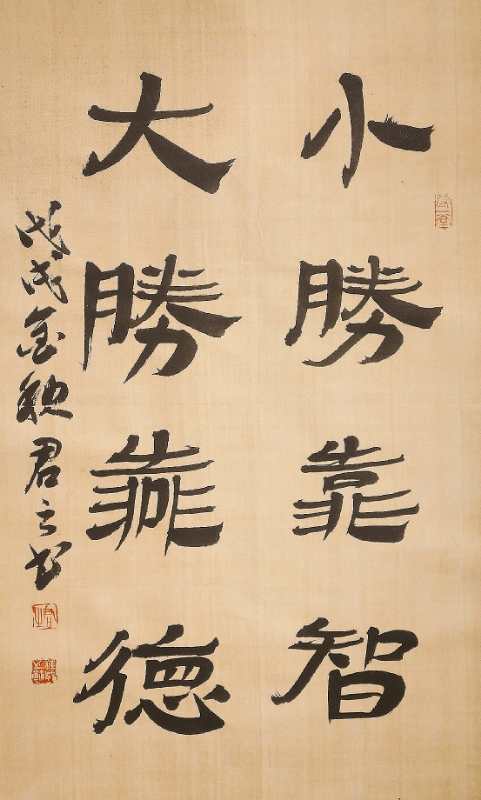 小勝靠智
大勝靠德
戊戌金秋君之書